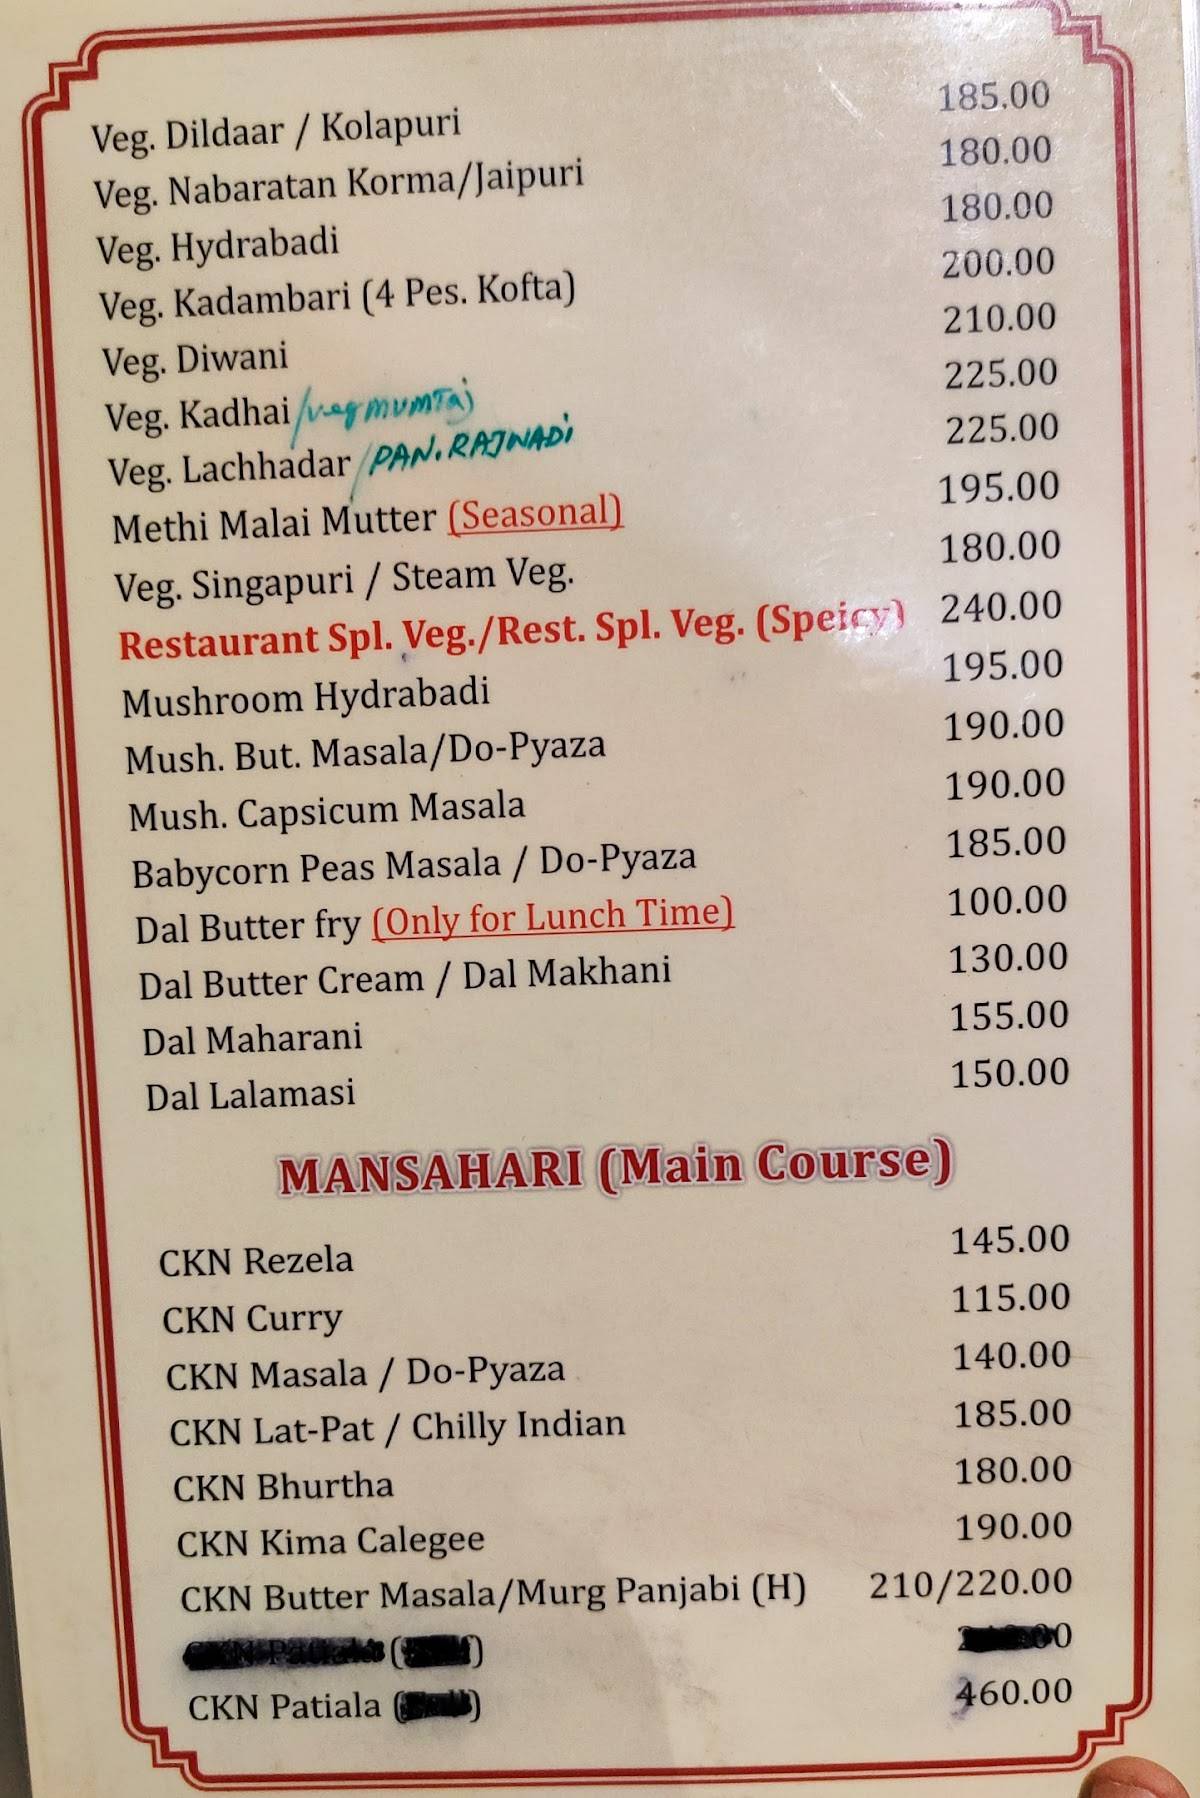 Veg. Dildaar / Kolapuri 185.00
Veg. Nabaratan Korma/Jaipuri 180.00
Veg. Hydrabadi 180.00
Veg. Kadambari (4 Pes. Kofta) 200.00
Veg. Diwani 210.00
Veg. Kadhai /veg MUMTaj 225.00
Veg. Lachhadar /PAN. RAJWADi 225.00
Methi Malai Mutter (Seasonal) 195.00
Veg. Singapuri / Steam Veg. 180.00
Restaurant Spl. Veg./Rest. Spl. Veg. (Speicy) 240.00
Mushroom Hydrabadi 195.00
Mush. But. Masala/Do-Pyaza 190.00
Mush. Capsicum Masala 190.00
Babycorn Peas Masala / Do-Pyaza 185.00
Dal Butter fry (Only for Lunch Time) 100.00
Dal Butter Cream / Dal Makhani 130.00
Dal Maharani 155.00
Dal Lalamasi 150.00
MANSAHARI (Main Course)
CKN Rezela 145.00
CKN Curry 115.00
CKN Masala / Do-Pyaza 140.00
CKN Lat-Pat / Chilly Indian 185.00
CKN Bhurtha 180.00
CKN Kima Calegee 190.00
CKN Butter Masala/Murg Panjabi (H) 210/220.00
CKN Patiala 460.00